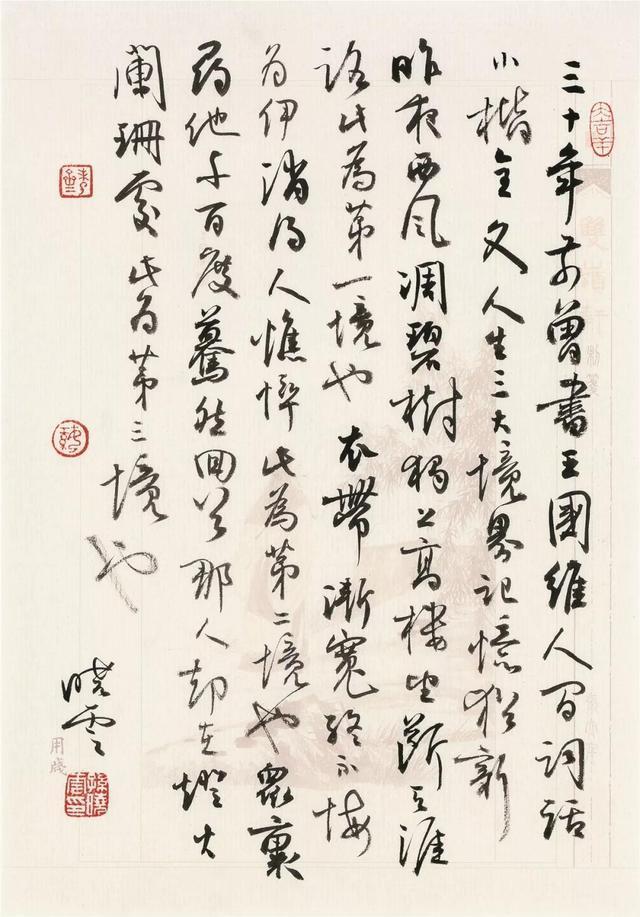 三十年前曾書王國維人間詞話
小楷全文人生三大境界記憶猶新
昨夜西風凋碧樹獨上高樓望斷天涯
路此為第一境也衣帶漸寬終不悔
為伊消得人憔悴此為第二境也眾裏
尋他千百度驀然回首那人却在燈火
闌珊處此為第三境也
曉雲
用牋